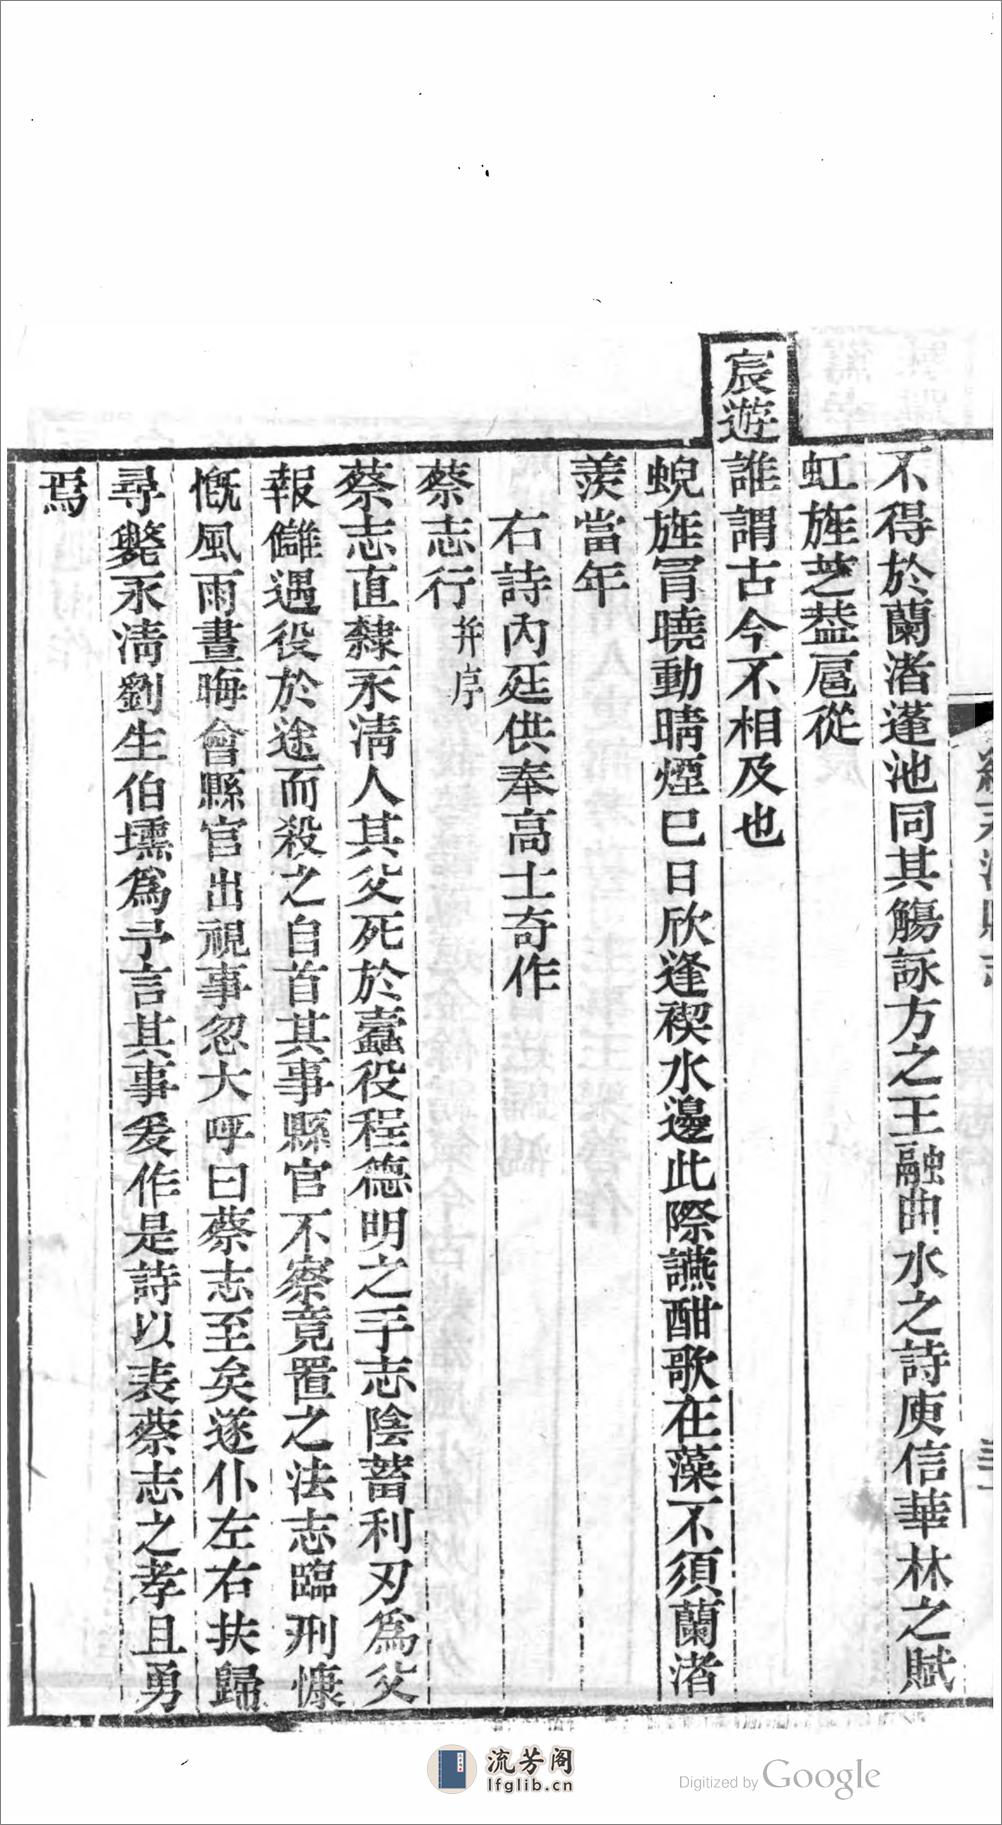 不得於蘭渚蓬池同其觴詠方之王融曲水之詩庾信華林之賦
虹旌芝葢扈從
宸遊誰謂古今不相及也
蜺旌罥曉動晴煙巳日欣逢禊水邊此際讌酣歌在藻不須蘭渚
羨當年
右詩內廷供奉高士奇作
蔡志行并序
蔡志直隸永淸人其父死於蠹役程德明之手志陰蓄利刃爲父
報讎遇役於途而殺之自首其事縣官不察竟置之法志臨刑慷
慨風雨晝晦會縣官出視事忽大呼曰蔡志至矣遂仆左右扶歸
尋斃永淸劉生伯壎爲予言其事爰作是詩以表蔡志之孝且勇
焉
流芳阁
lfglib.cn
Digitized by Google